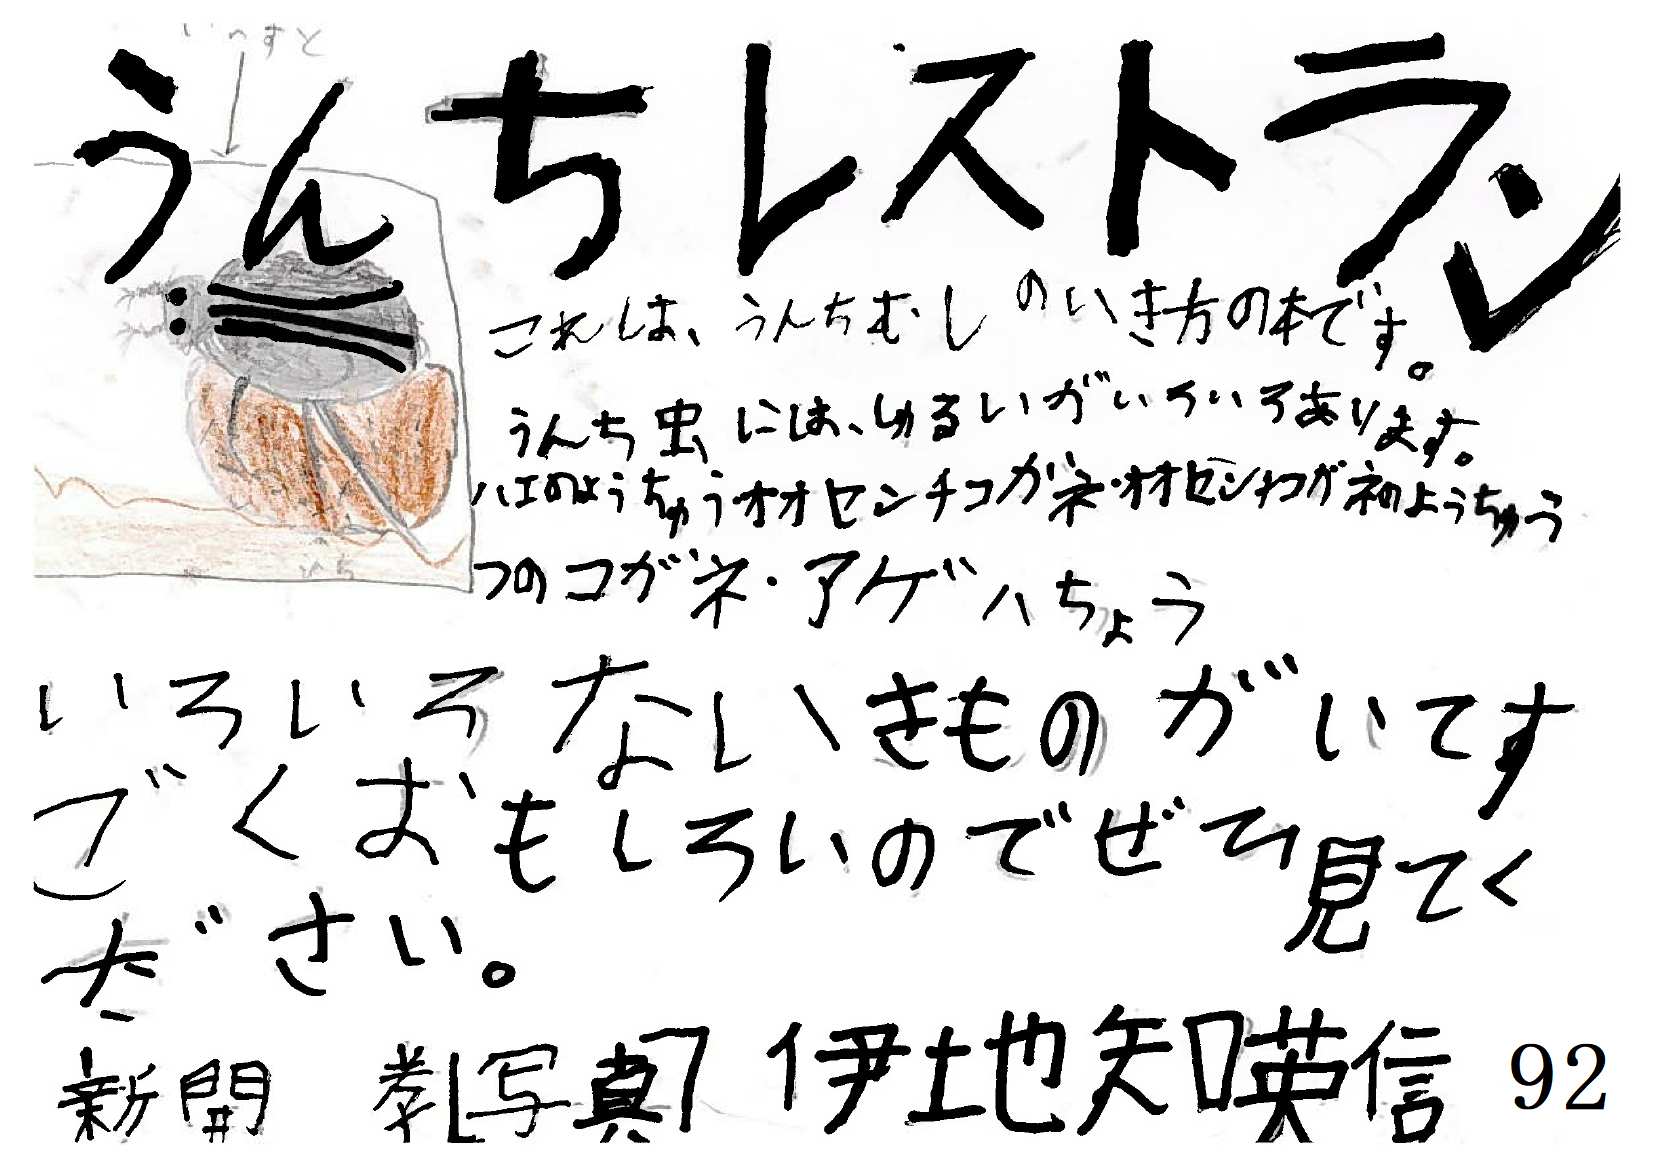 うんちレストラン
これは、うんちむしのいき方の本です。
うんち虫には、しゅるいがいろいろあります。
ハエのようちゅう・オオセンチコガネ・オオセンチコガネのようちゅう
つのコガネ・アゲハちょう
いろいろないきものがいてす
ごくおもしろいのでぜひ見てく
ださい。
新開 孝 写真 伊地知英信 92